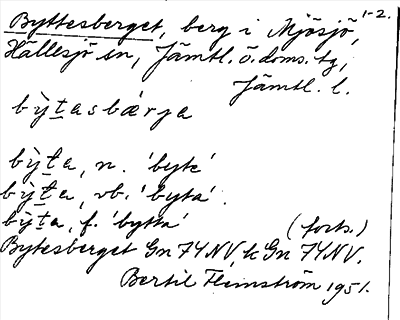 1-2.
Byttesberget, berg i Mjösjö,
Hällesjö sn, Jämtl. ö. doms. tg,
Jämtl. l.
bỳtasbærja
bỳta, n. 'byte'
bỳta, vb. 'byta'.
bỳta, f. 'bytta' (forts.)
Bytesberget Gn 74NV, k Gn 74NV.
Bertil Flemström 1951.